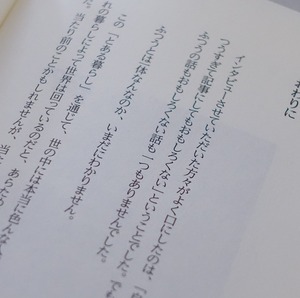 おわりに
インタビューさせていただいた方々がよく口にしたのは、「
つうすぎて記事にしてもおもしろくない」ということでした。でも
ふつうの話もおもしろくない話も一つもありませんでした。
ふつうとは一体なんなのか、いまだにわかりません。
この「とある暮らし」を通じて、世の中には本当に色んな
れの暮らしによって世界は回っているのだと、あらため
た。当たり前のことかもしれませんが、当